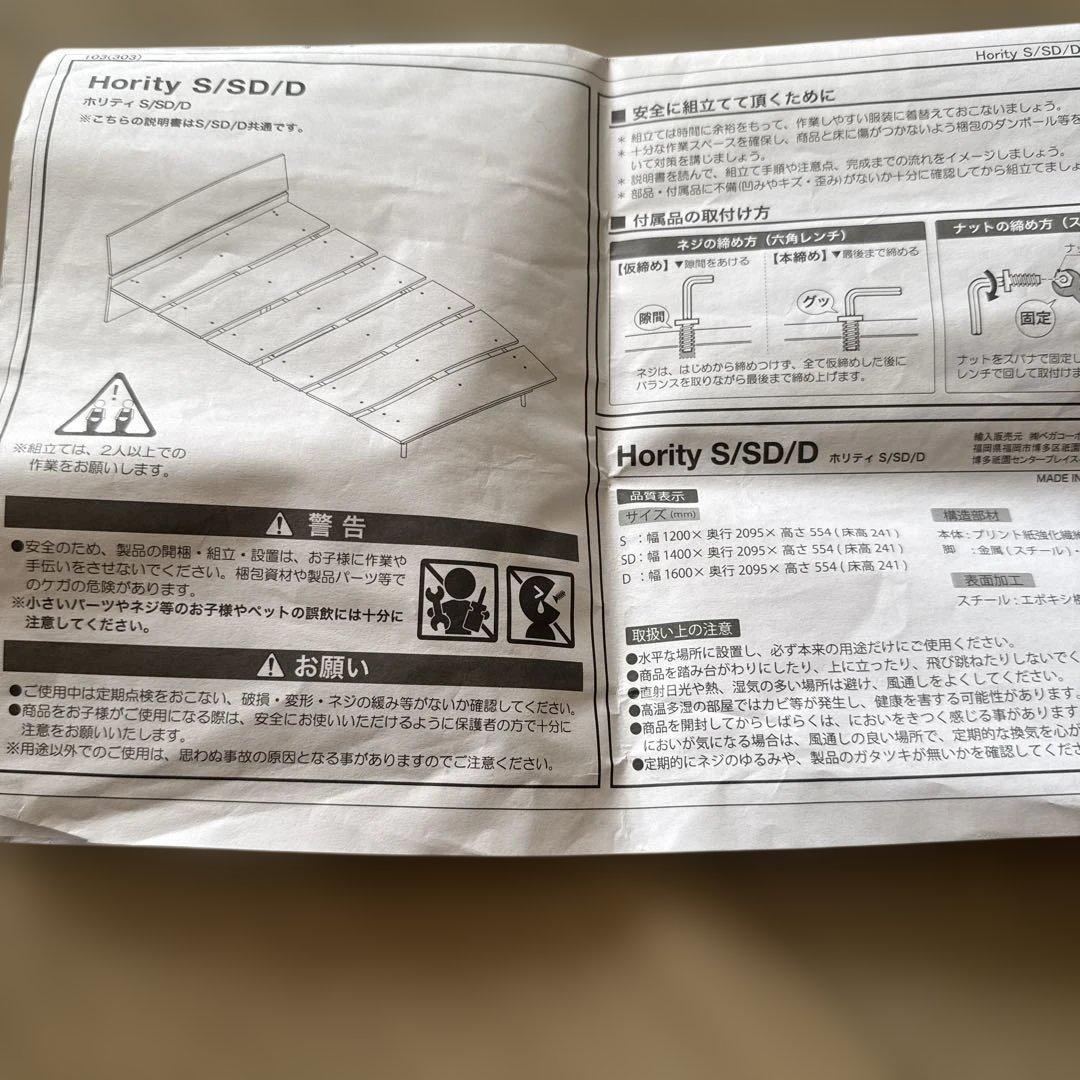 103(303)
Hority S/SD/D
ホリティ S/SD/D
※こちらの説明書はS/SD/D共通です。
※組立ては、2人以上での
作業をお願いします。
警告
●安全のため、製品の開梱・組立・設置は、お子様に作業や
手伝いをさせないでください。梱包資材や製品パーツ等で
のケガの危険があります。
※小さいパーツやネジ等のお子様やペットの誤飲には十分に
注意してください。
お願い
●ご使用中は定期点検をおこない、破損・変形・ネジの緩み等がないか確認してください。
●商品をお子様がご使用になる際は、安全にお使いいただけるように保護者の方で十分に
注意をお願いいたします。
※用途以外でのご使用は、思わぬ事故の原因となる事がありますのでご注意ください。
Hority S/SD/D
■ 安全に組立てて頂くために
* 組立ては時間に余裕をもって、作業しやすい服装に着替えておこないましょう。
* 十分な作業スペースを確保し、商品と床に傷がつかないよう梱包のダンボール等を
いて対策を講じましょう。
* 説明書を読んで、組立て手順や注意点、完成までの流れをイメージしましょう。
* 部品・付属品に不備(凹みやキズ・歪み)がないか十分に確認してから組立てましょ
■ 付属品の取付け方
ネジの締め方（六角レンチ）
【仮締め】▼隙間をあける
【本締め】▼最後まで締める
隙間
グッ
ネジは、はじめから締めつけず、全て仮締めした後に
バランスを取りながら最後まで締め上げます。
ナットの締め方（ス
ナッ
固定
ナットをスパナで固定し
レンチで回して取付けま
Hority S/SD/D ホリティ S/SD/D
輸入販売元 ㈱ベガコーポ
福岡県福岡市博多区祇園
博多祇園センタープレイス
MADE IN
品質表示
サイズ(mm)
S : 幅 1200× 奥行 2095× 高さ 554 ( 床高 241 )
SD : 幅 1400× 奥行 2095× 高さ 554 ( 床高 241 )
D : 幅 1600× 奥行 2095× 高さ 554 ( 床高 241 )
構造部材
本体 : プリント紙強化繊維
脚 : 金属 ( スチール )・
表面加工
スチール : エポキシ樹
取扱い上の注意
●水平な場所に設置し、必ず本来の用途だけにご使用ください。
●商品を踏み台がわりにしたり、上に立ったり、飛び跳ねたりしないでく
●直射日光や熱、湿気の多い場所は避け、風通しをよくしてください。
●高温多湿の部屋ではカビ等が発生し、健康を害する可能性があります。
●商品を開封してからしばらくは、においをきつく感じる事があります
においが気になる場合は、風通しの良い場所で、定期的な換気を心が
●定期的にネジのゆるみや、製品のガタツキが無いかを確認してくださ